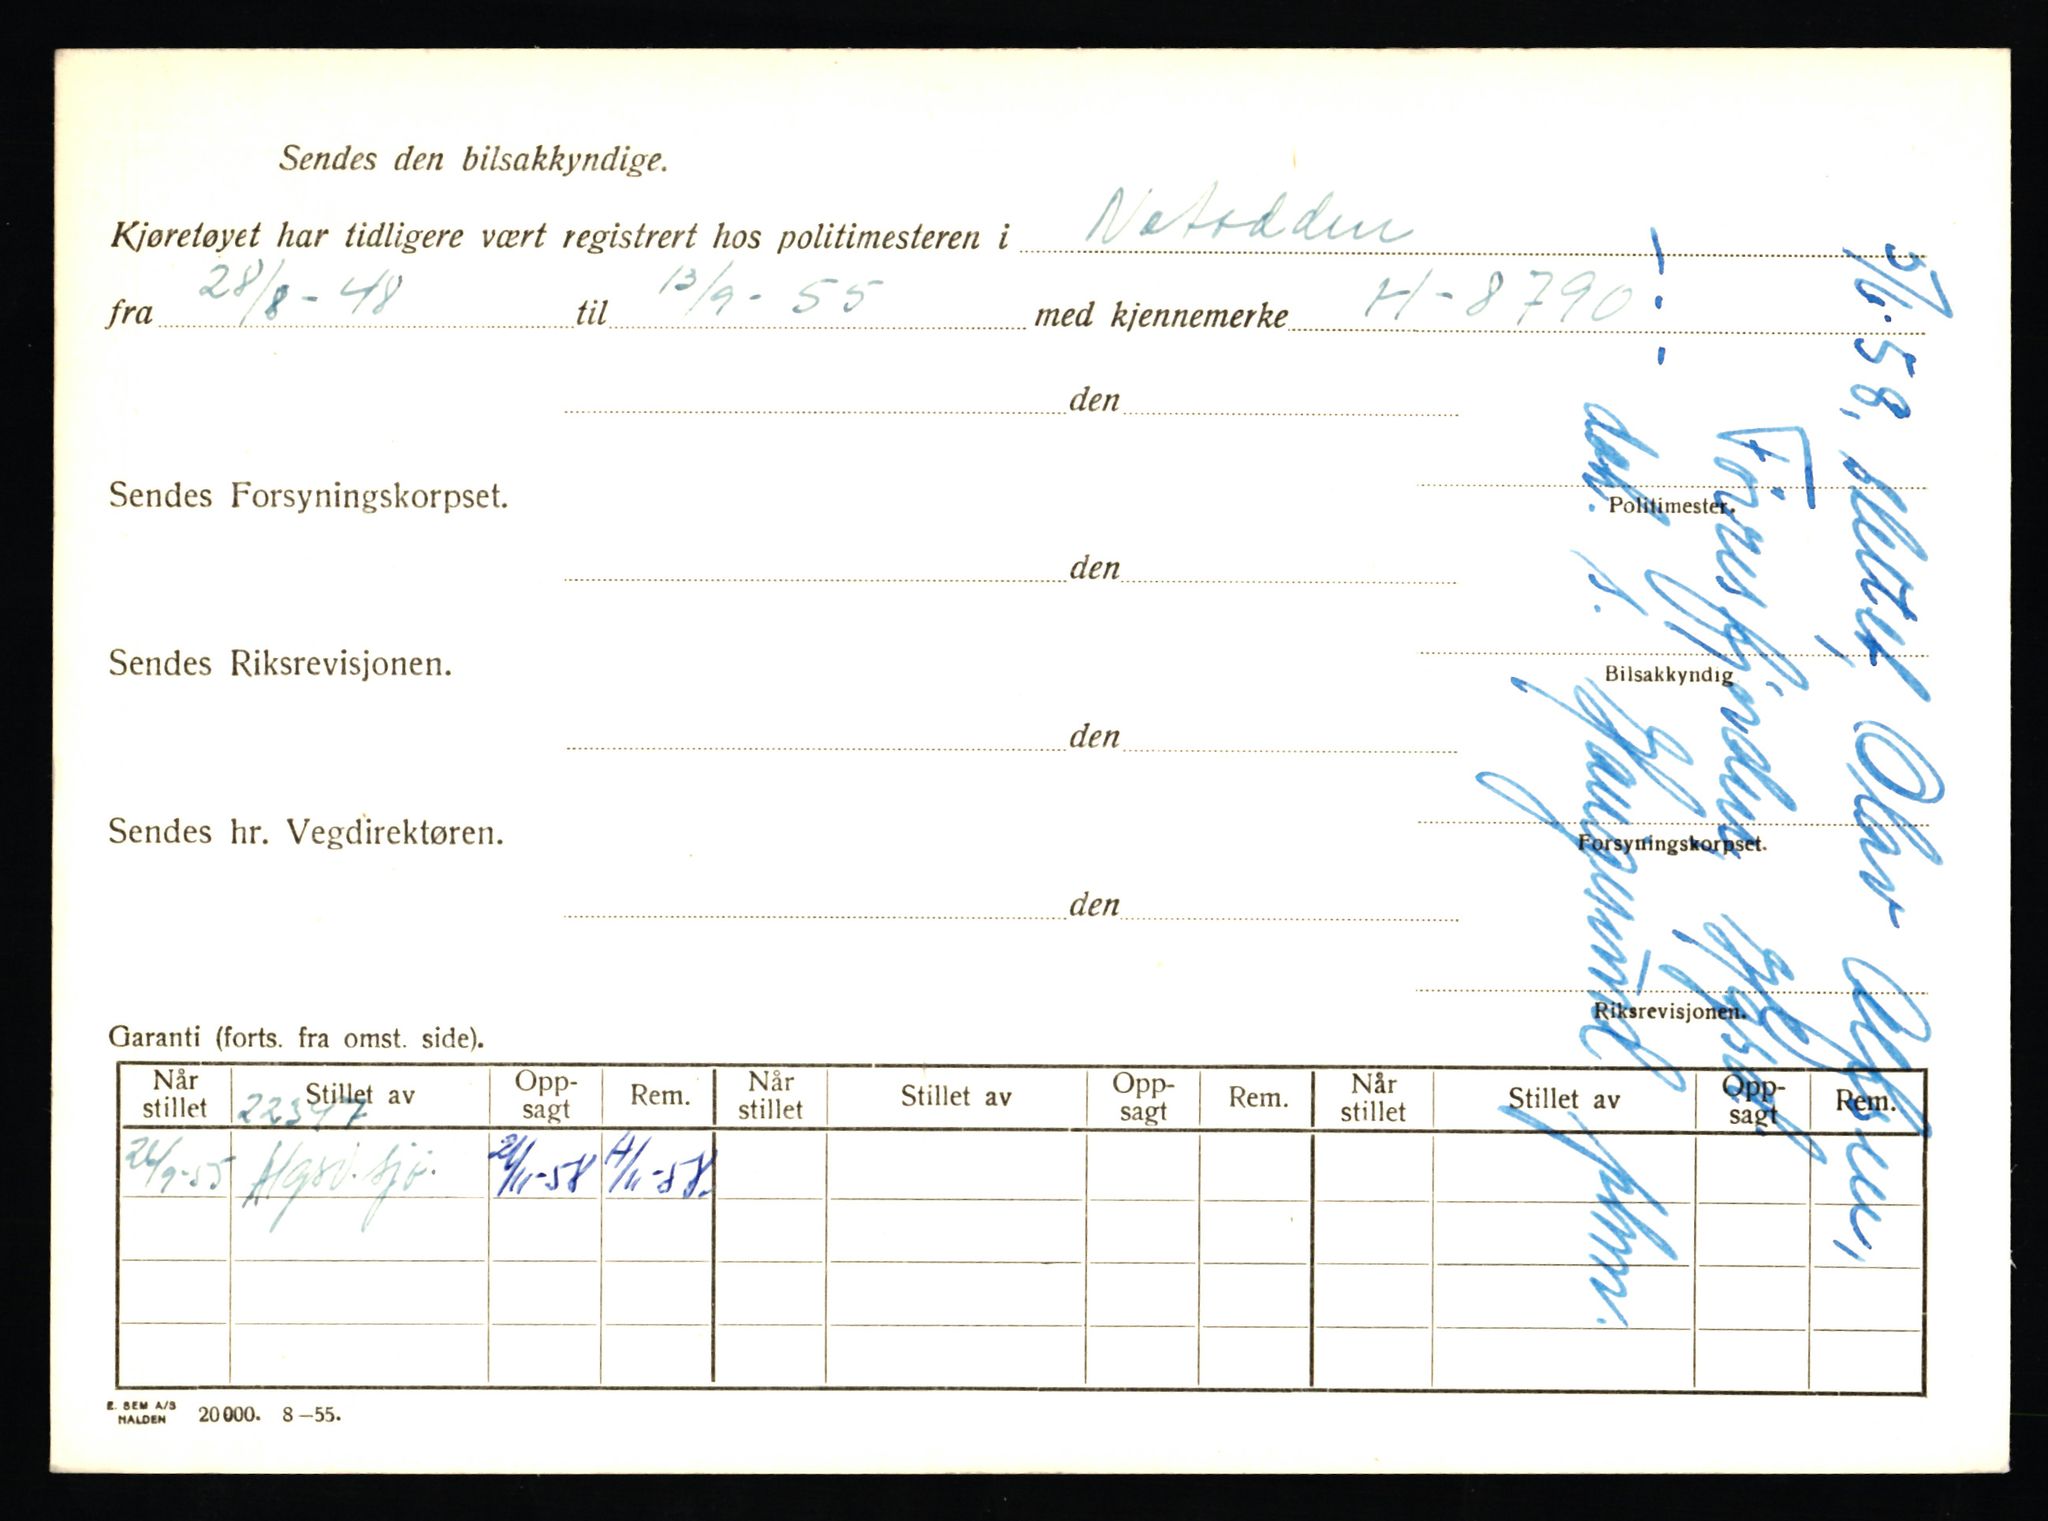 Sendes den bilsakkyndige.
Kjøretøyet har tidligere vært registrert hos politimesteren i Notodden
fra 28/8-48 til 13/9-55 med kjennemerke H-8790
den
Politimester.
Sendes Forsyningskorpset.
den
Bilsakkyndig
Sendes Riksrevisjonen.
den
Forsyningskorpset.
Sendes hr. Vegdirektøren.
den
Riksrevisjonen.
Garanti (forts. fra omst. side).
Når stillet Stillet av Opp-sagt Rem. Når stillet Stillet av Opp-sagt Rem. Når stillet Stillet av Opp-sagt Rem.
22347
26/9-55 sjø. /11-58 4/11-58.
E. SEM A/S
HALDEN 20000. 8-55.
5/6.58, slettet, Olav
Förresfjorden,
dødsf.